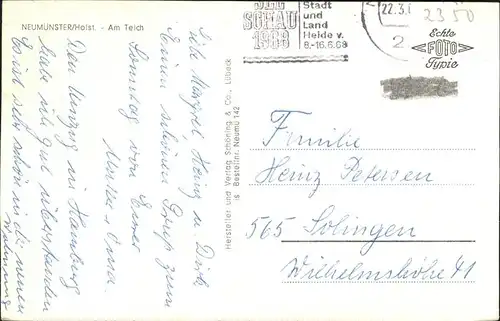 NEUMÜNSTER/Holst. - Am Teich
Liebe Margret, Heinz u. Dirk
Einen schönen Gruß zum
Sonntag von Eurer
Oma.
Den Umzug in Hamburg
habe ich gut überstanden
Es ist sehr schön in die neuen
Wohnung
Hersteller und Verlag Schöning & Co., Lübeck
is Bestellnr. Neumü 142
SCHAU
1968
Stadt
und
Land
Heide v.
8.-16.6.68
22.3.
2
2350
Echte
FOTO
Typie
Familie
Heinz Petersen
565 Solingen
Wilhelmshöhe 41